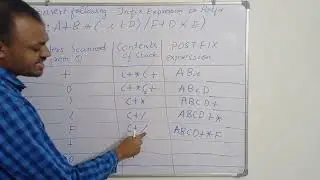 Convert following Infix Expression to Postfix
: A+B*(C+D)/F+D*E)
Scanned Contents of Stack POSTFIX expression
+ (+*(+ ABC
D (+*(+ ABCD
) (+* ABCD+
/ (+/ ABCD+*
F (+/ ABCD+*F
+
D